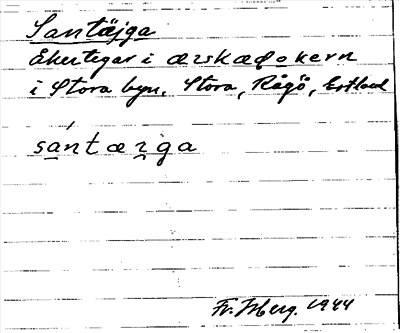 Santäjga
Åkertegar i ærskæđokern
i Stora byn. Stora, Rågö, Estland
sántæiga
Fr. Isberg. 1944